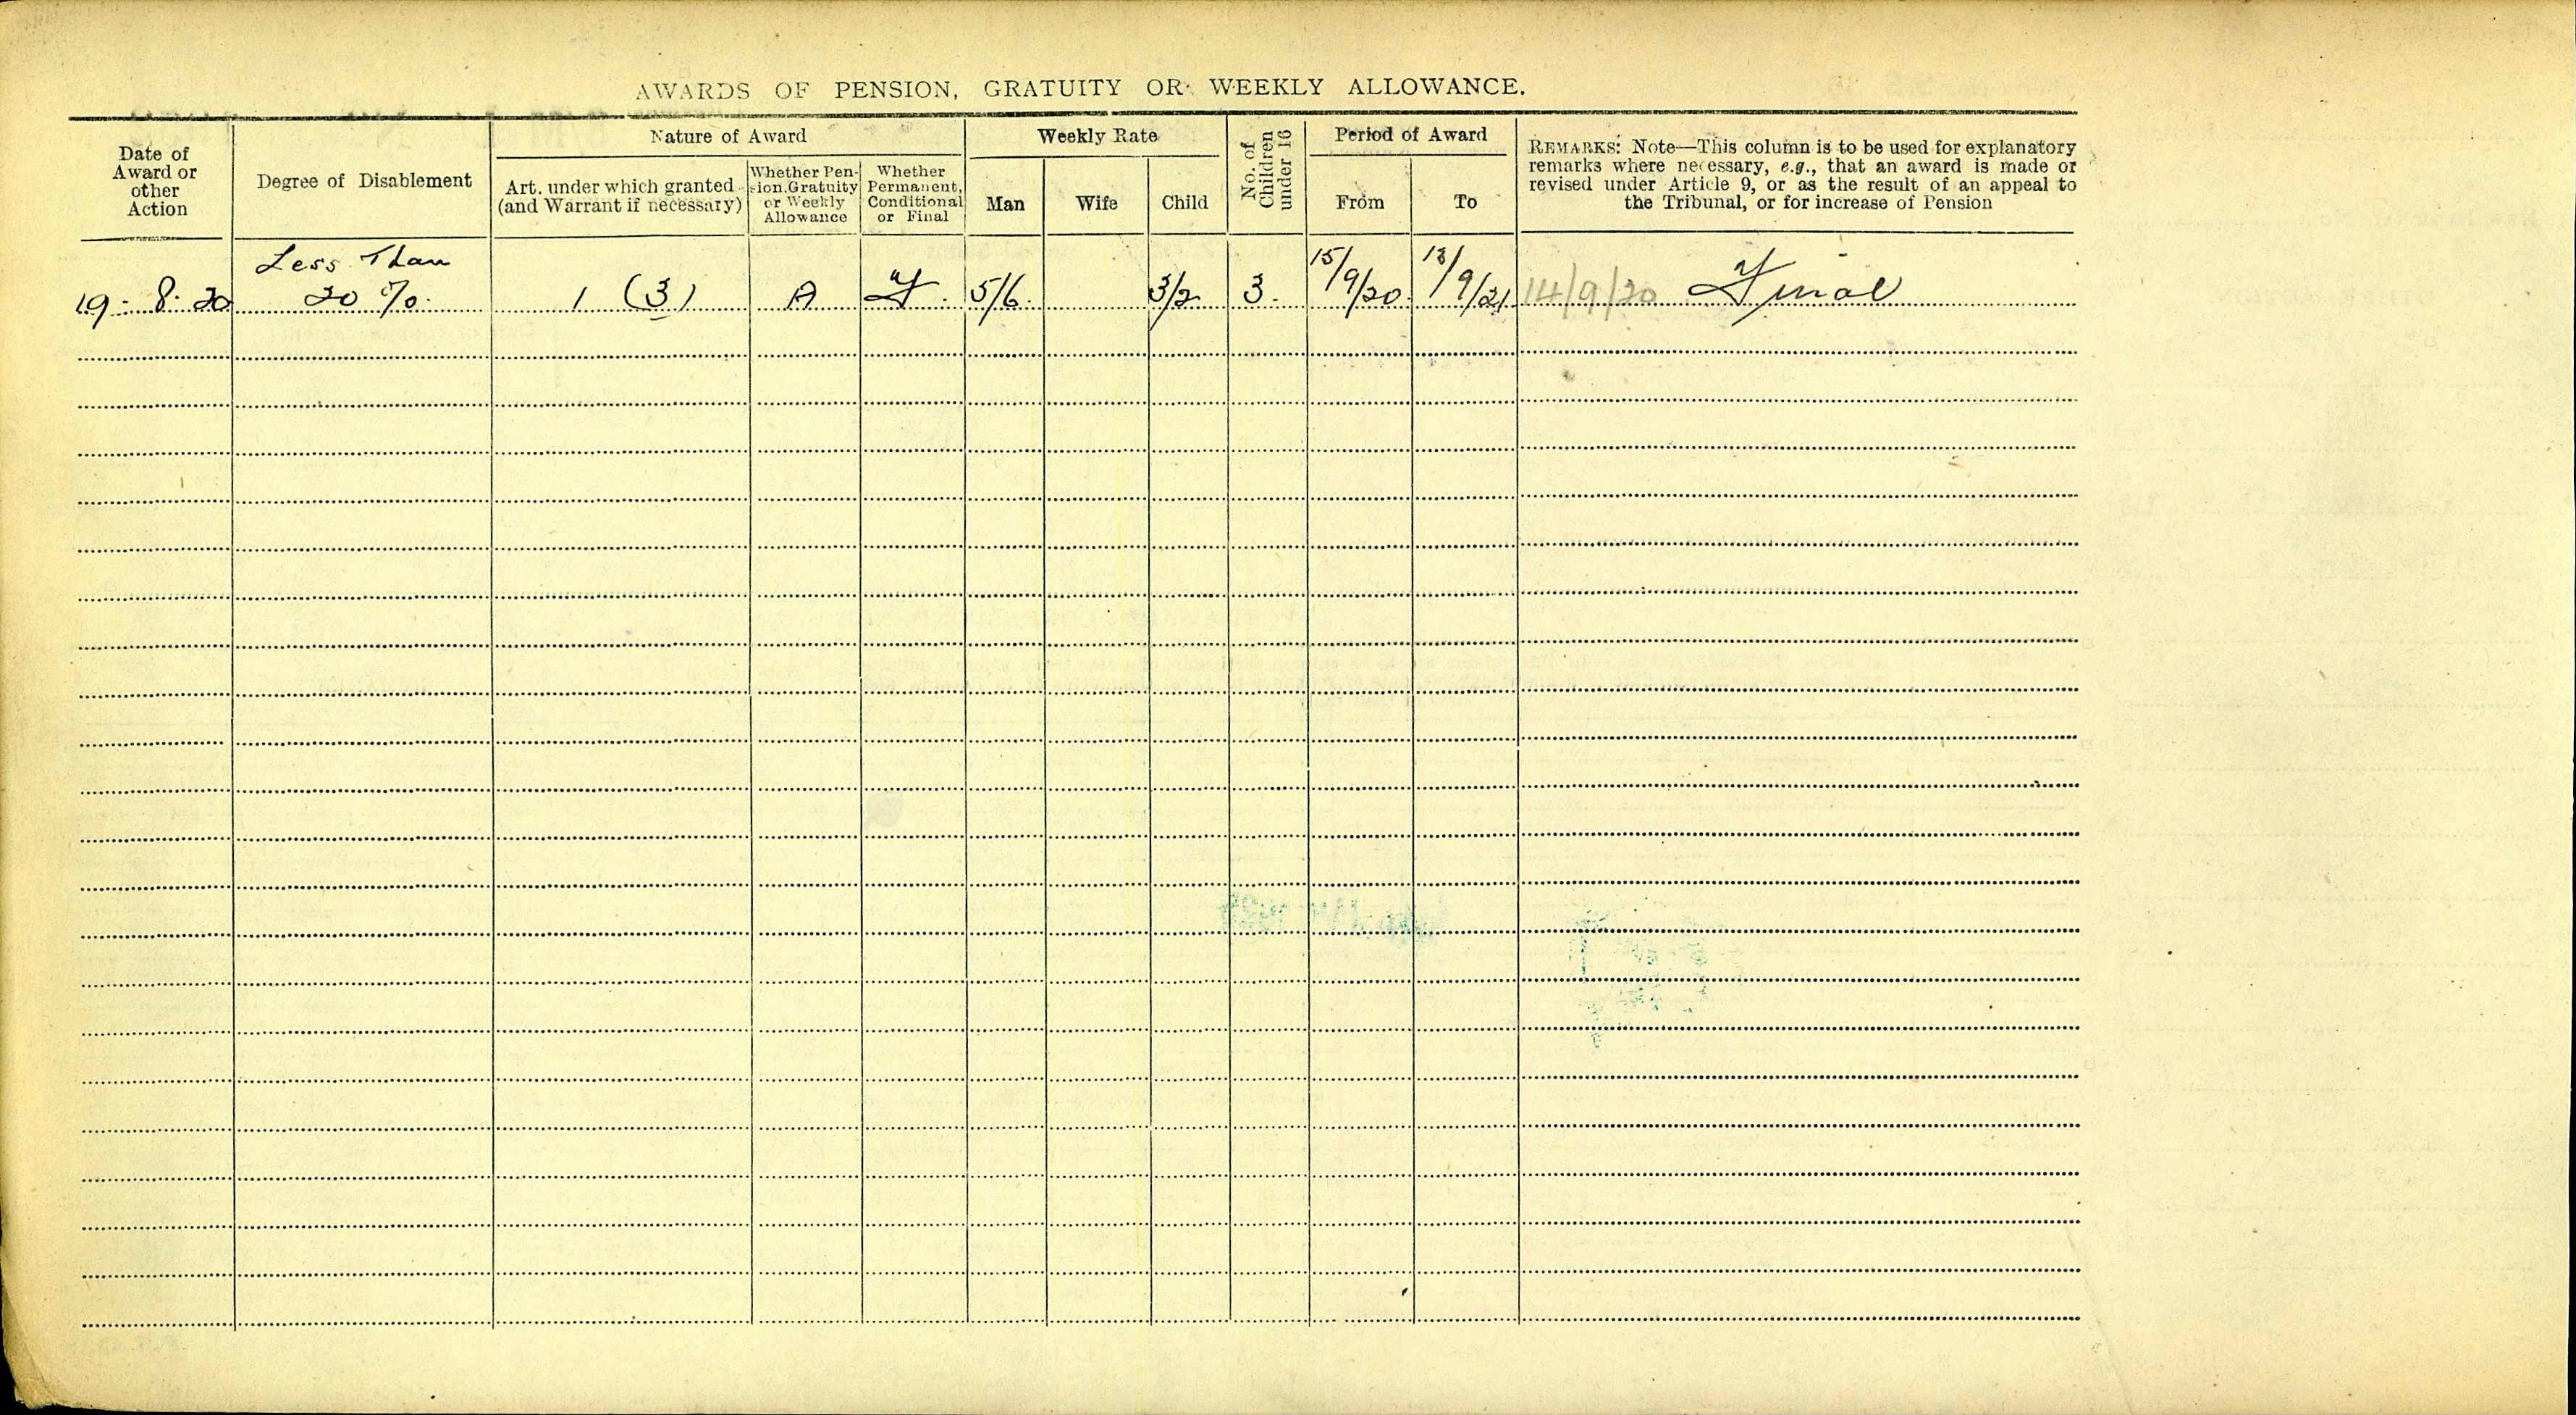 AWARDS OF PENSION, GRATUITY OR WEEKLY ALLOWANCE.
Date of
Award or
other
Action
Degree of Disablement
Nature of Award
Art. under which granted
(and Warrant if necessary)
Whether Pen-
sion, Gratuity
or Weekly
Allowance
Whether
Permanent,
Conditional
or Final
Weekly Rate
Man
Wife
Child
No. of
Children
under 16
Period of Award
From
To
REMARKS: Note—This column is to be used for explanatory
remarks where necessary, e.g., that an award is made or
revised under Article 9, or as the result of an appeal to
the Tribunal, or for increase of Pension
Less Than
19 . 8 . 20 20 % . 1 (3) A F . 5/6 . 3/2 3 . 15/9/20 . 13/9/21 14/9/20 Final